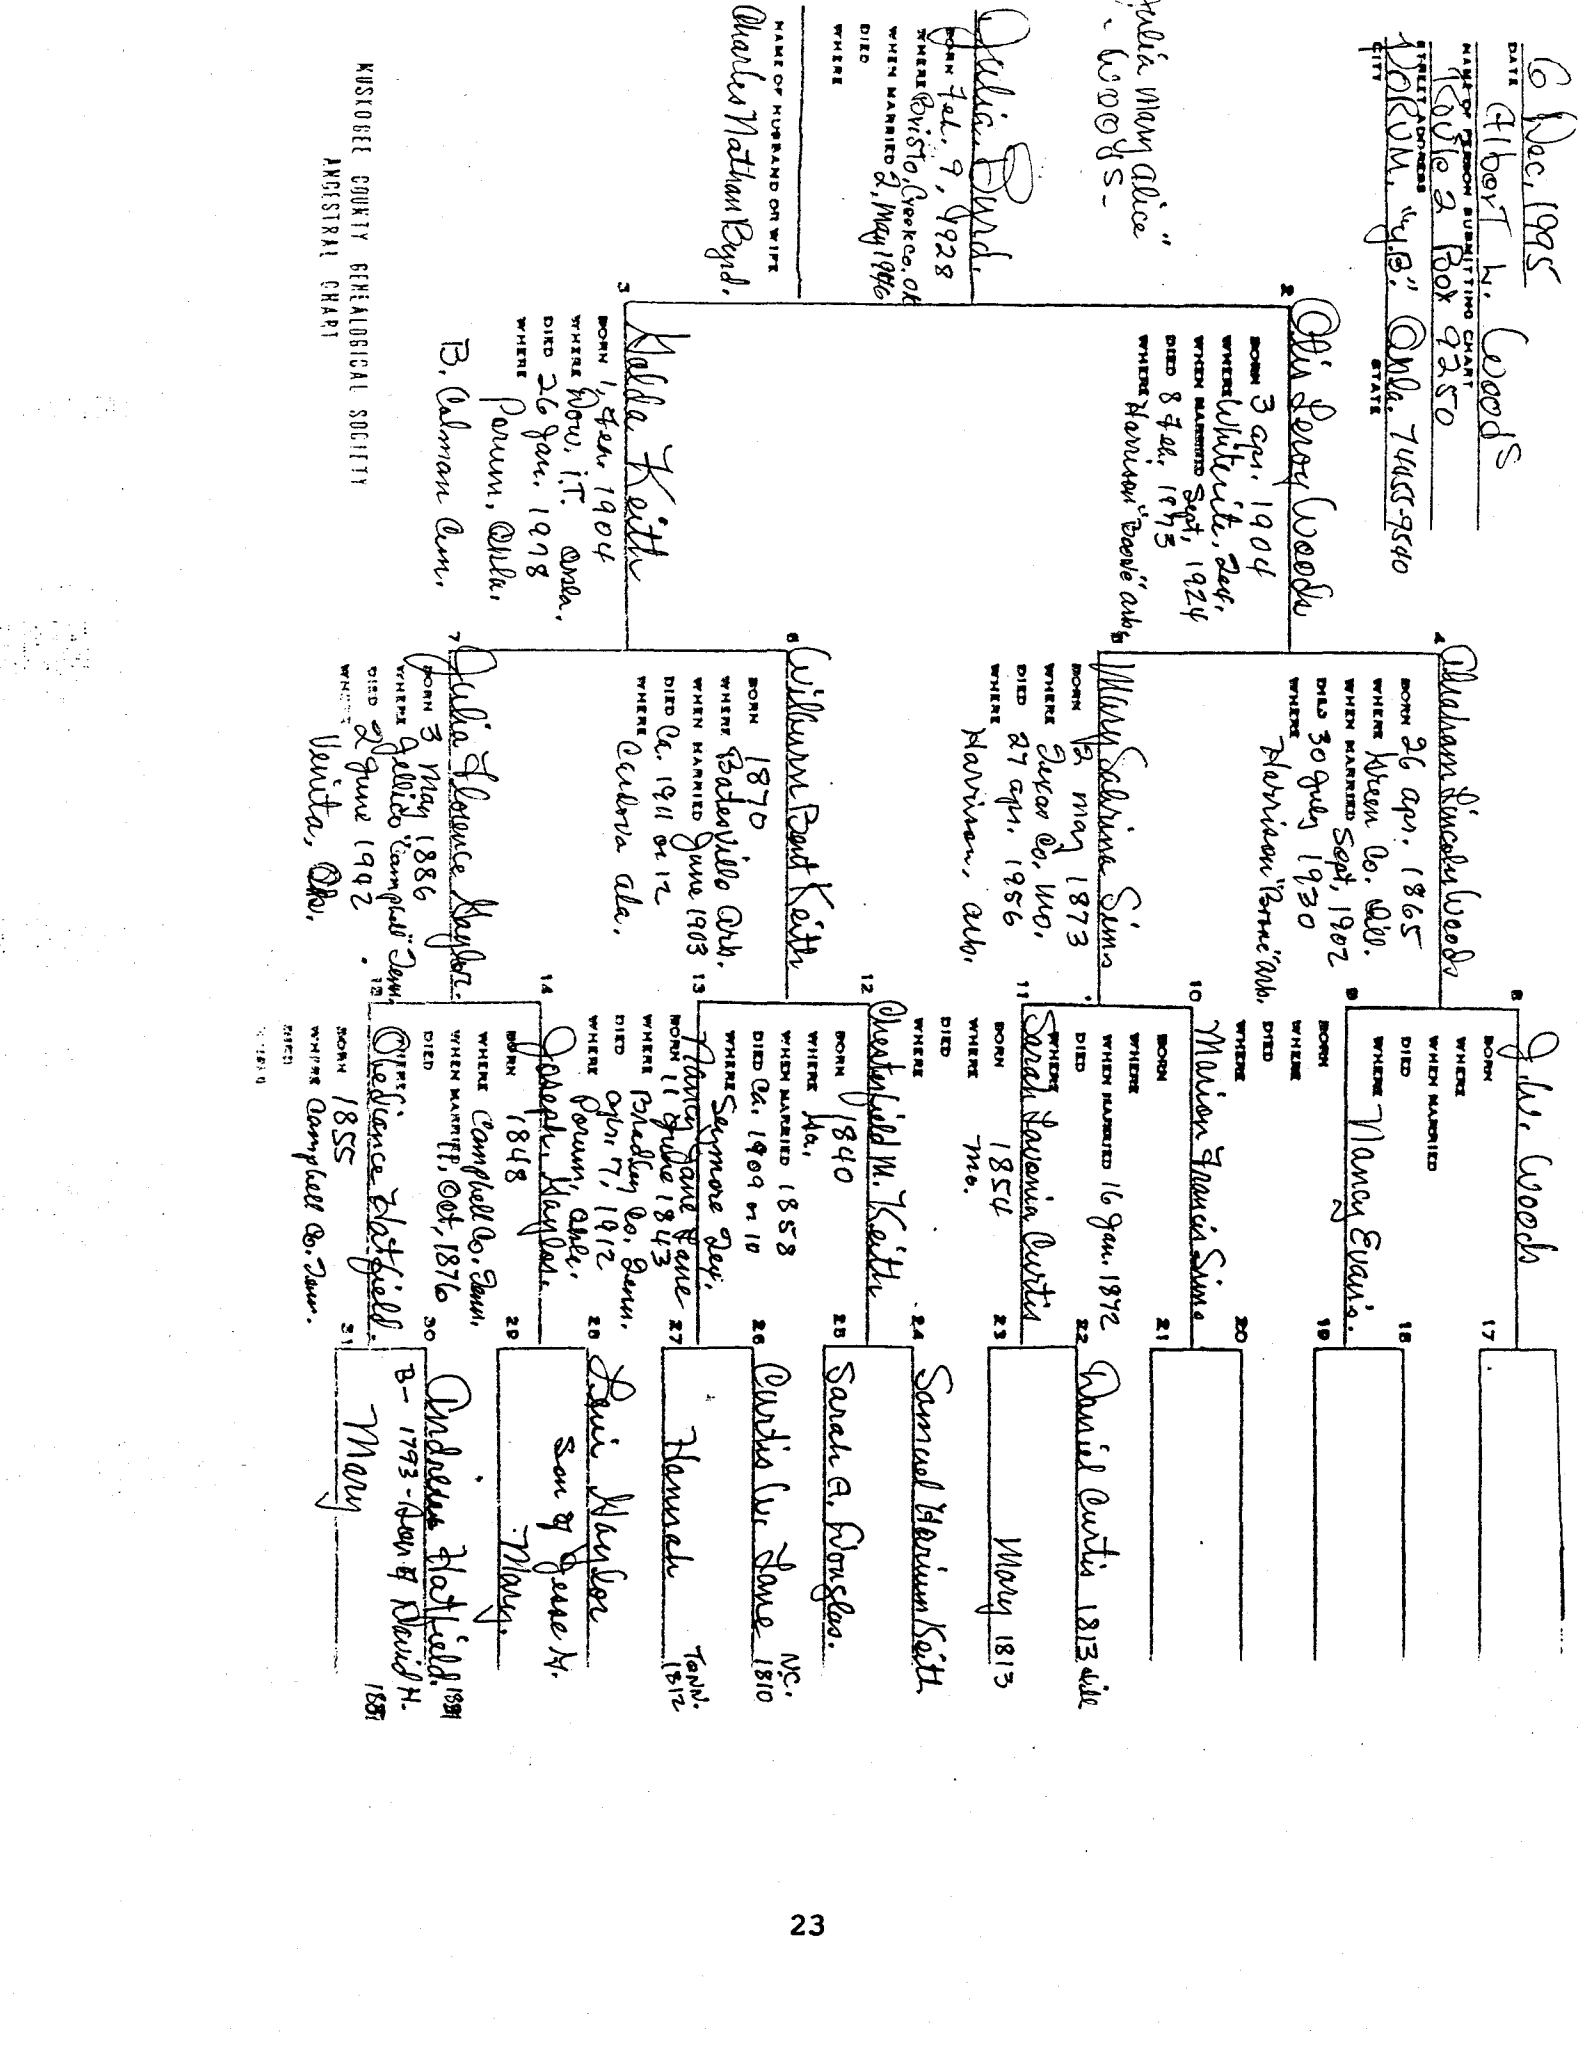 6 Dec, 1995
DATE
Albert L. Woods
NAME OF PERSON SUBMITTING CHART
Route 2 Box 9250
STREET ADDRESS
PORUM, "y.B." Okla, 74455-9540
CITY STATE
Julia Mary Alice"
- Woods -
Julia Byrd.
BORN Feb. 9, 1928
WHERE Bristo, Creek Co. OK
WHEN MARRIED 2, May 1946
DIED
WHERE
NAME OF HUSBAND OR WIFE
Charles Nathan Byrd.
MUSKOGEE COUNTY GENEALOGICAL SOCIETY
ANCESTRAL CHART
2
Otis Leroy Woods
BORN 3 apr. 1904
WHERE Whiterite, Tex.
WHEN MARRIED Sept, 1924
DIED 8 Feb. 1973
WHERE Harrison "Boone" ark,
3
Halda Keith
BORN 1, Feb. 1904
WHERE Dow, I.T. Okla.
DIED 26 Jan. 1978
WHERE Porum, Okla.
B. Calman Cem.
4
Abraham Lincoln Woods
BORN 26 apr. 1865
WHERE Green Co. Ill.
WHEN MARRIED Sept, 1902
DIED 30 July 1930
WHERE Harrison "Boone" ark.
5
Mary Sabrina Sims
BORN 12 may 1873
WHERE Texas Co, Mo.
DIED 27 apr. 1956
WHERE Harrison, ark.
6
Wilburn Bent Keith
BORN 1870
WHERE Batesville Ark.
WHEN MARRIED June 1903
DIED Ca. 1911 or 12
WHERE Cardova ala.
7
Julia Florence Haylor.
BORN 3 May 1886
WHERE Jellico "Campbell" Tenn,
DIED 2 June 1942
WHERE Venita, Okla.
8
J.W. Woods
BORN
WHERE
WHEN MARRIED
DIED
WHERE
9
Nancy Evans.
BORN
WHERE
DIED
WHERE
10
Marion Francis Sims
BORN
WHERE
WHEN MARRIED 16 Jan. 1872
DIED
WHERE
11
Sarah Lavonia Curtis
BORN 1854
WHERE Mo.
DIED
WHERE
12
Chesterfield M. Keith
BORN 1840
WHERE Ha.
WHEN MARRIED 1858
DIED Ca. 1909 or 10
WHERE Seymore Tex.
13
Nancy Jane Lane
BORN 11 June 1843
WHERE Bradley Co. Tenn.
DIED apr. 7, 1912
WHERE Porum, okla.
14
Joseph Haylor.
BORN 1848
WHERE Campbell Co. Tenn.
WHEN MARRIED 11, Oct, 1876
DIED
WHERE
15
Obediance Hatfield.
BORN 1855
WHERE Campbell Co. Tenn.
DIED
17
18
19
20
21
22
Daniel Curtis 1813
23
Mary 1813
24
Samuel Harium Keith
25
Sarah A. Douglas.
26
Curtis W. Lane N.C. 1810
27
Hannah Tenn. 1812
28
Levi Haylor
Son of Jesse H.
29
Mary.
30
Andrew Hatfield.
B- 1793 - Son of David H.
31
Mary
23